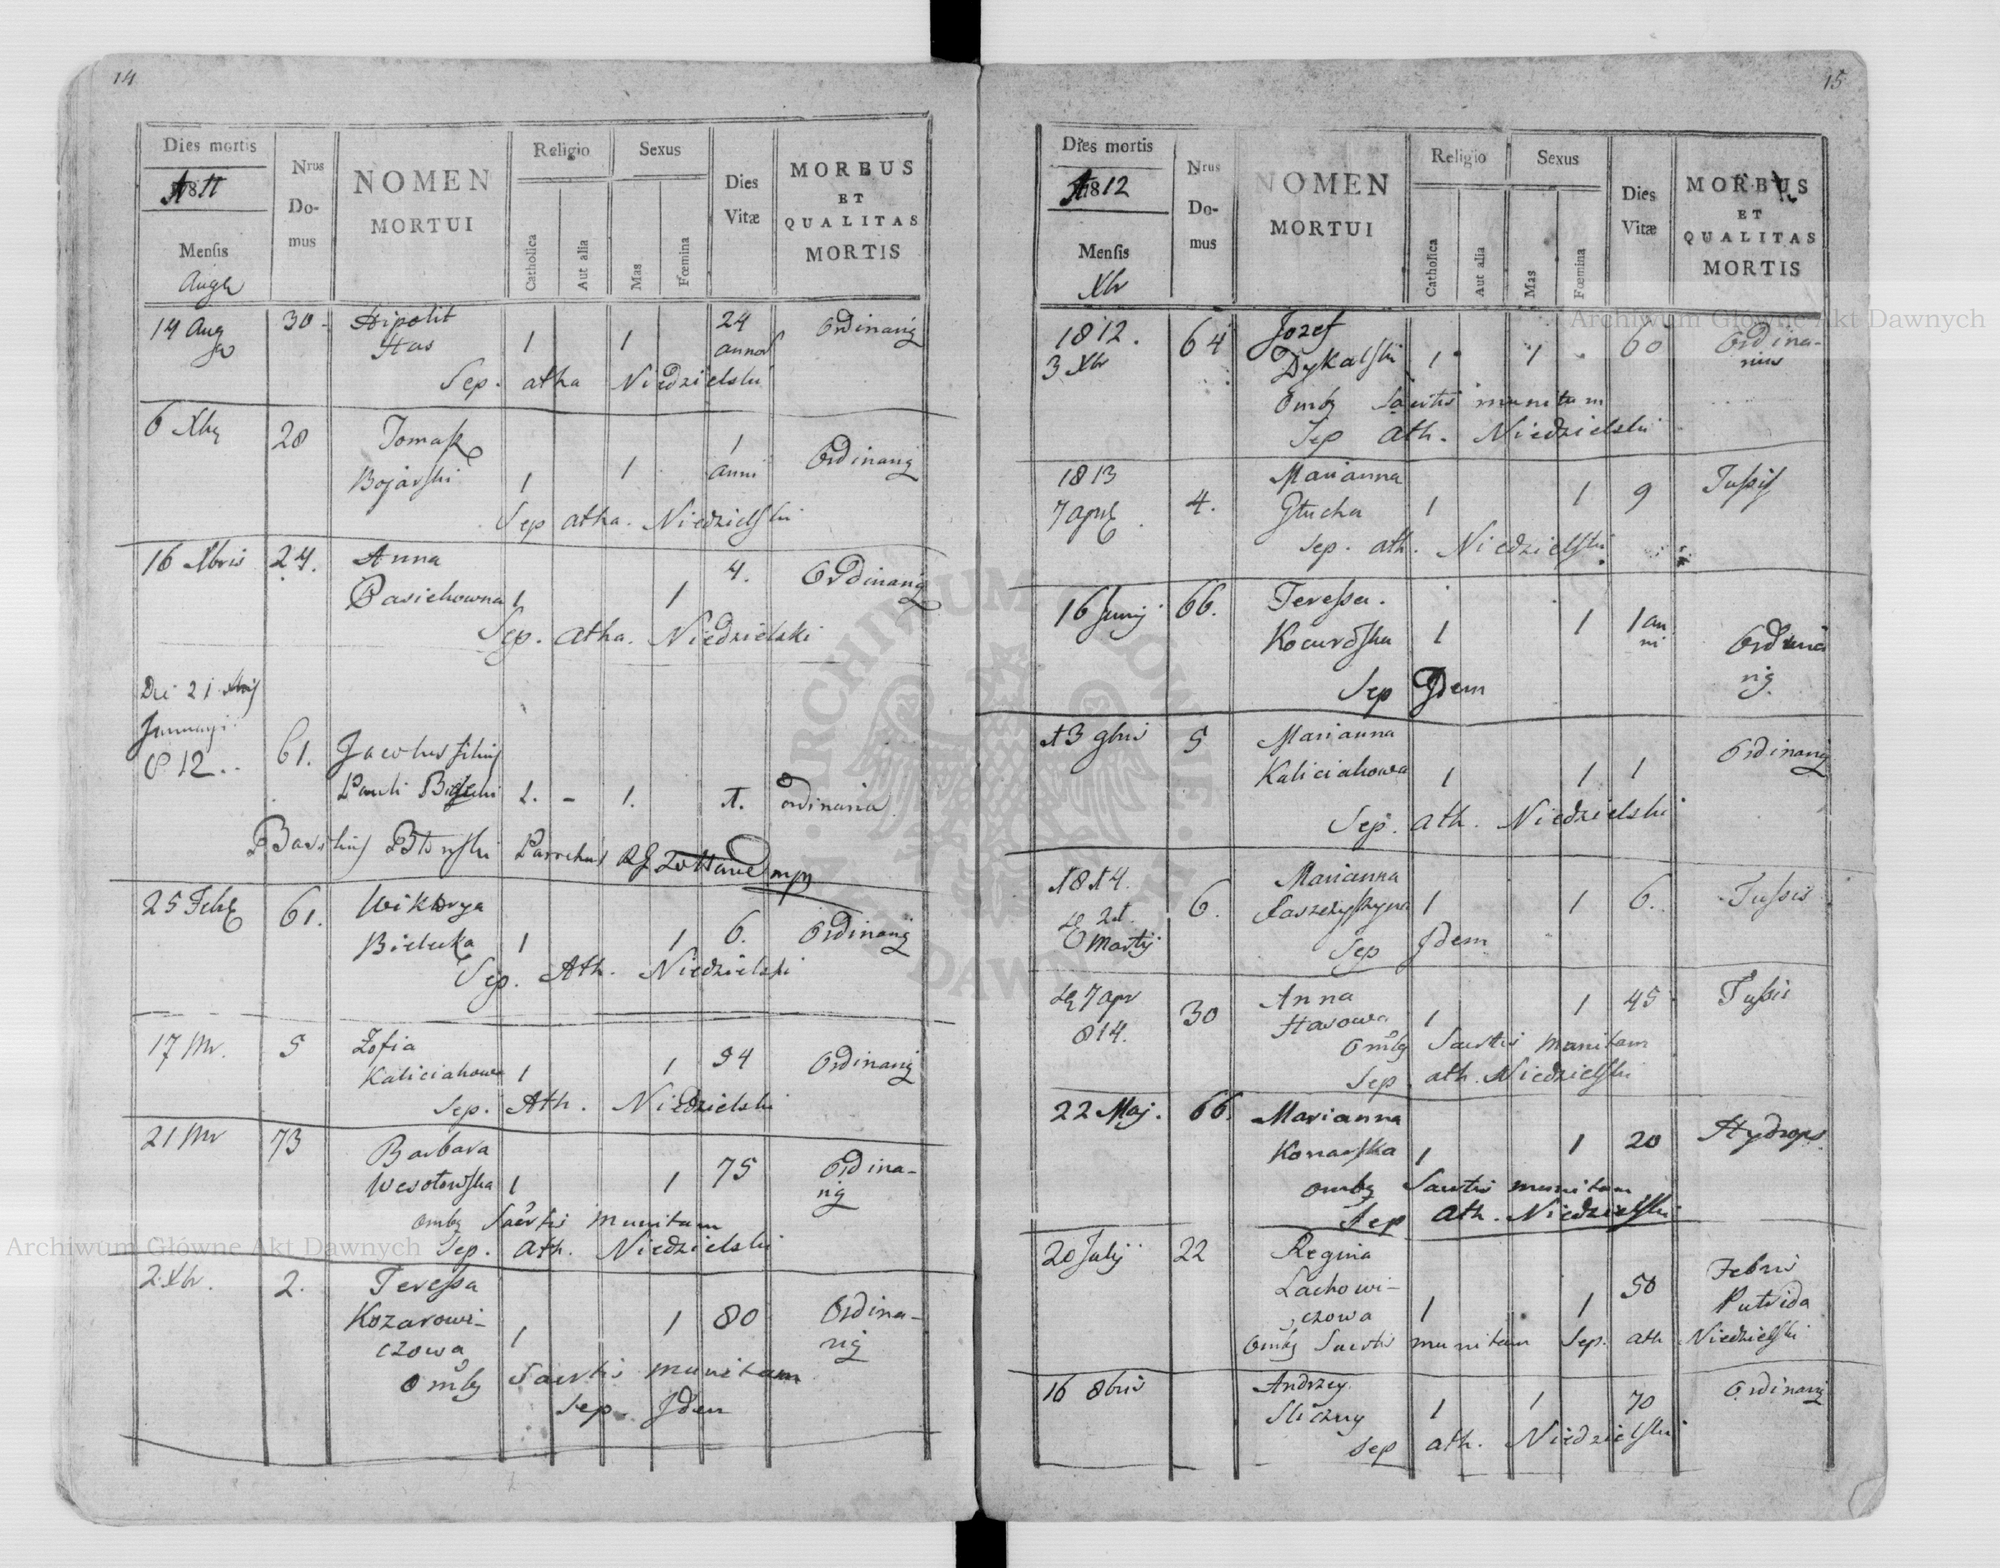 14
Dies mortis
A 1811
Mensis
Augu
Nrus
Do-
mus
NOMEN
MORTUI
Religio
Catholica
Aut alia
Sexus
Mas
Fœmina
Dies
Vitæ
MORBUS
ET
QUALITAS
MORTIS
14 Aug 30 Hipolit 24 Ordinariꝰ
Has 1 1 annor
Sep. atha Niedzielski
6 Xbr 28 Tomasz 1 Ordinariꝰ
Bojarski 1 1 anni
Sep atha. Niedzielski
16 Xbris 24. Anna 4. Ordinariꝰ
Pasiekowna 1 1
Sep. atha. Niedzielski
Die 21
Januarij
812. 61. Jacobus filius
Pauli 1. - 1. 1. ordinaria
Basilius Parochus
25 Febr 61. Wiktorya 6. Ordinariꝰ
Bielecka 1 1
Sep. Ath. Niedzielski
17 Mr. 5 Zofia 1 54 Ordinariꝰ
Kaliciakowa 1
Sep. Ath. Niedzielski
21 Mr 73 Barbara 75 Ordina-
Wesołowska 1 1 riꝰ
ombꝰ Sacrtis munitam
Sep. Ath. Niedzielski
2 Xbr. 2. Teressa 80 Ordina-
Kozarowi- 1 riꝰ
czowa 1
ombꝰ Sacrtis munitam
Sep. Jdem
15
Dies mortis
A 1812
Mensis
Xbr
Nrus
Do-
mus
NOMEN
MORTUI
Religio
Catholica
Aut alia
Sexus
Mas
Fœmina
Dies
Vitæ
MORBUS
ET
QUALITAS
MORTIS
1812. 64 Jozef 60 Ordina-
3 Xbr Dykalski 1 1 rius
ombꝰ Sacrtis munitum
Sep Ath. Niedzielski
1813 Marianna Tussis
7 april 4. Głucha 1 1 9
Sep. ath. Niedzielski
16 Junij 66. Teressa 1 1 an
Kocuroska 1 ni Ordina
Sep Jdem riꝰ
13 9bris 5 Marianna Ordinariꝰ
Kaliciakowa 1 1 1
Sep. Ath. Niedzielski
1814. Marianna
d 21 6. 1 1 6. Tussis
Martij Sep Jdem
d 7 apr 30 Anna 1 45 Tussis
814. Hasowa 1
ombꝰ Sacrtis munitam
Sep. ath. Niedzielski
22 Maj. 66. Marianna 1 20 Hydrops
Konarska 1
ombꝰ Sacrtis munitam
Sep Ath. Niedzielski
20 Julij 22 Regina 50 Febris
Lachowi- 1 Putrida
czowa 1
ombꝰ Sacrtis munitam Sep. ath Niedzielski
16 8bris Andrzey 70 Ordinariꝰ
Sliczny 1 1
Sep ath. Niedzielski
Archiwum Główne Akt Dawnych
Archiwum Główne Akt Dawnych
ARCHIWUM GŁÓWNE AKT DAWNYCH